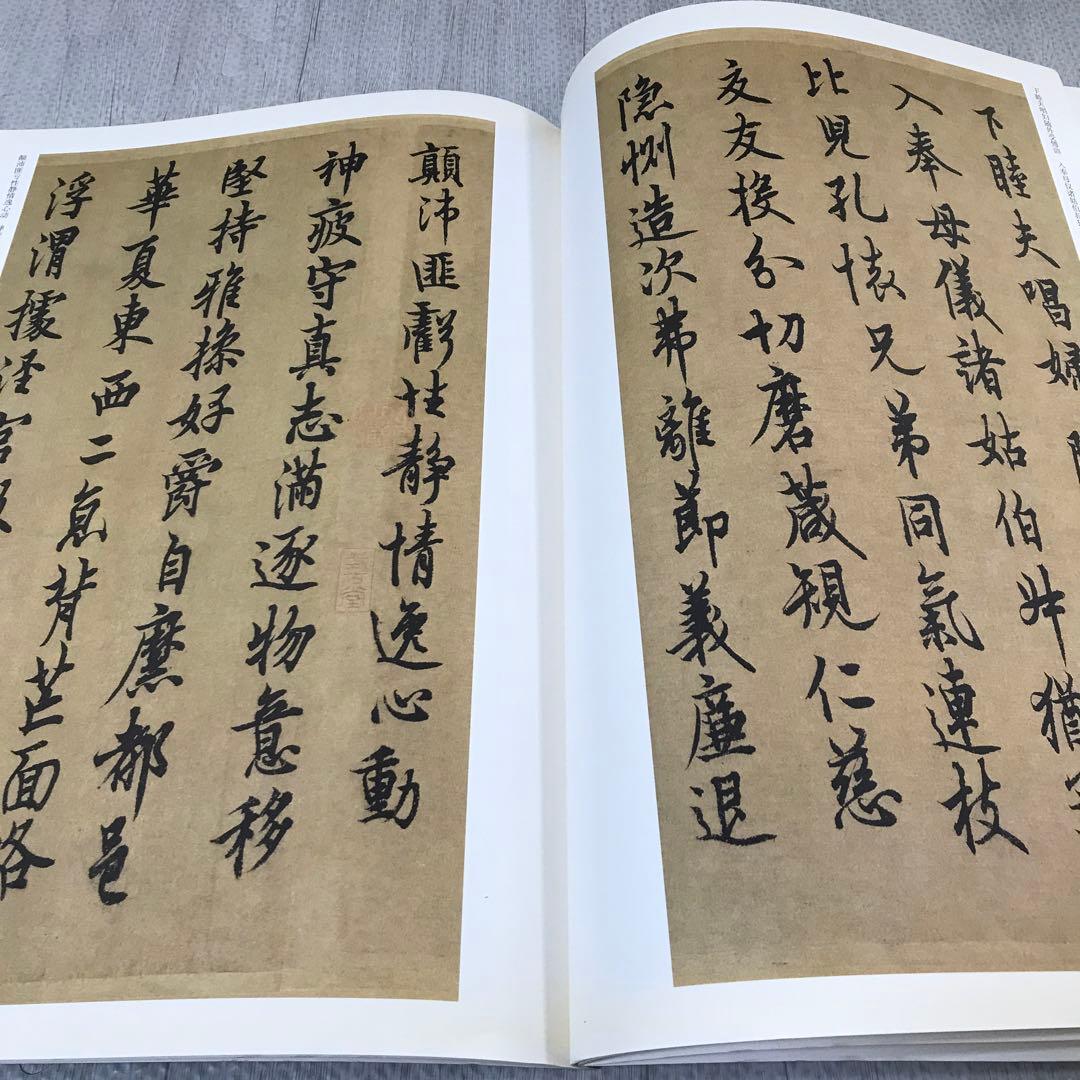 下睦夫唱婦
入奉母儀諸姑伯叔猶子
比兒孔懷兄弟同氣連枝
交友投分切磨箴規仁慈
隐惻造次弗離節義廉退
顛沛匪虧性静情逸心動
神疲守真志滿逐物意移
堅持雅操好爵自縻都邑
華夏東西二京背芒面洛
浮渭據涇宮殿
颠沛匪亏性静情逸心动